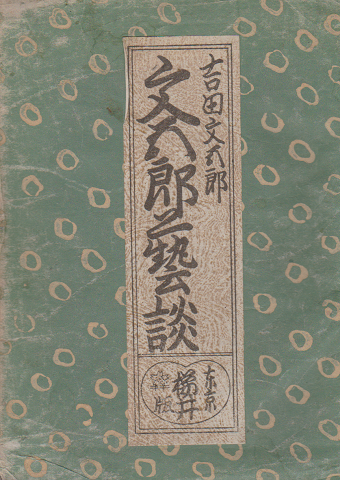 吉田文五郎
文五郎芸談
東京
櫻井
版